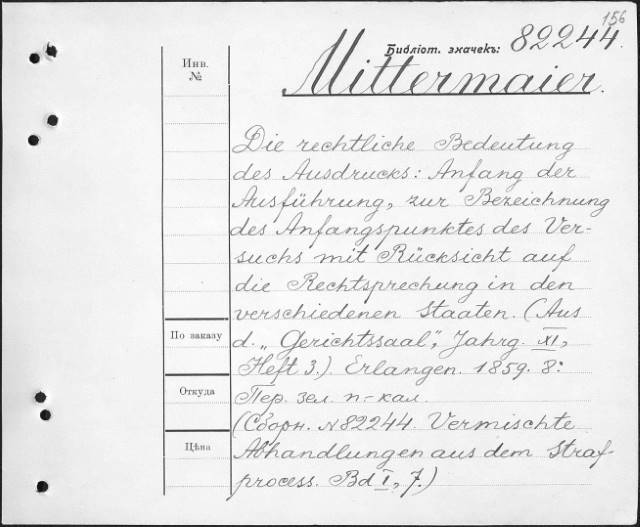 156
Библіот. значекъ: 82244.
Инв.
№
Mittermaier.
Die rechtliche Bedeutung
des Ausdrucks: Anfang der
Ausführung, zur Bezeichnung
des Anfangspunktes des Ver-
suchs mit Rücksicht auf
die Rechtsprechung in den
verschiedenen Staaten. (Aus
По заказу
d. „Gerichtssaal", Jahrg. XI,
Heft 3.). Erlangen. 1859. 8:
Откуда
Пер. зел. п-кал.
(Сборн. N82244. Vermischte
Цѣна
Abhandlungen aus dem Straf-
process. Bd I, 7.)